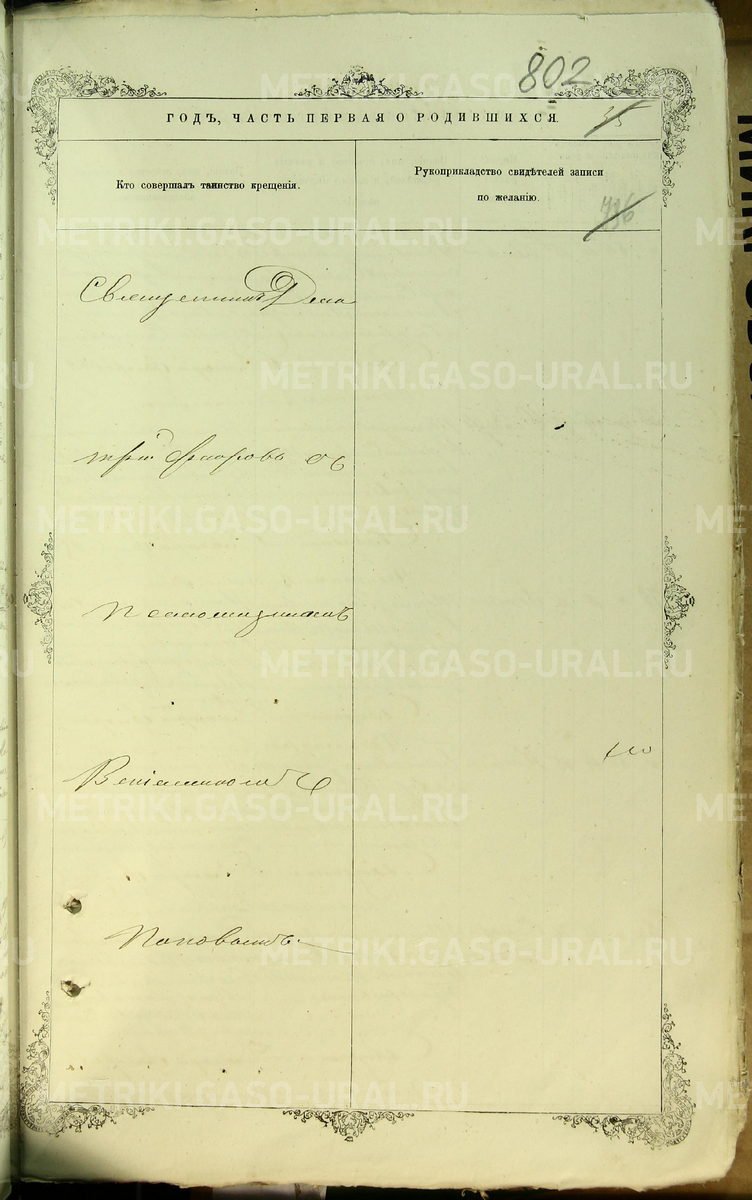 802
ГОДЪ, ЧАСТЬ ПЕРВАЯ О РОДИВШИХСЯ.
35
Кто совершалъ таинство крещенія.
Рукоприкладство свидѣтелей записи
по желанію.
736
Священникъ Дими
трій Флоровъ съ
Псаломщикомъ
Веніаминомъ
Поповымъ.
METRIKI.GASO-URAL.RU